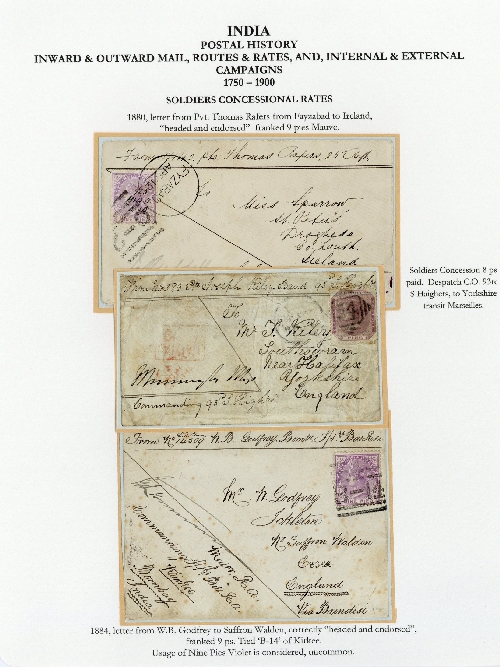 INDIA
POSTAL HISTORY
INWARD & OUTWARD MAIL, ROUTES & RATES, AND, INTERNAL & EXTERNAL
CAMPAIGNS
1750 – 1900
SOLDIERS CONCESSIONAL RATES
1880, letter from Pvt. Thomas Rafers from Fayzabad to Ireland,
"headed and endorsed" franked 9 pies Mauve.
From Thomas
FYZABAD
To
Miss Sparrow
St. Peter's
Drogheda
Co. Louth
Ireland
Soldiers Concession 8 ps
paid. Despatch C.O. 93rc
S Haighers, to Yorkshire
transit Marseilles.
Joseph Band
To
Mr
near Halifax
Yorkshire
England
Commanding 93rd
From No W. B. Godfrey
Mr. W. Godfrey
Nr Saffron Walden
Essex
England
Via Brindisi
Commanding
Major R.A.
Kirkee
Bombay
India
1884, letter from W.B. Godfrey to Saffron Walden, correctly "headed and endorsed",
franked 9 ps. Tied 'B-14' of Kirkee.
Usage of Nine Pies Violet is considered, uncommon.